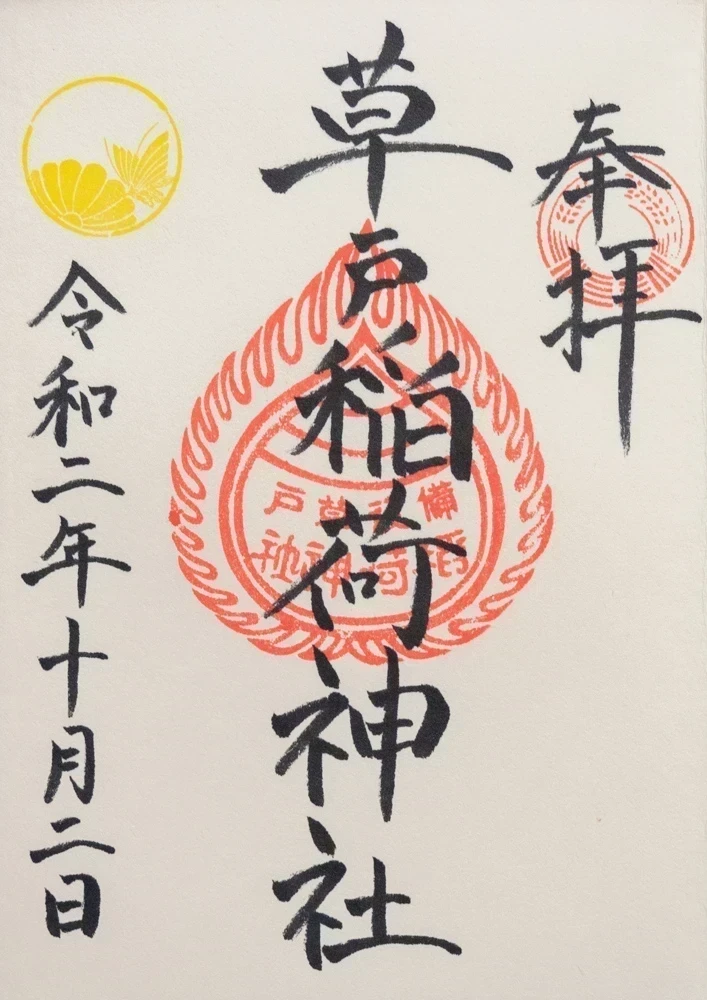 奉拝
草戸稲荷神社
備後草戸
稲荷神社
令和二年十月二日